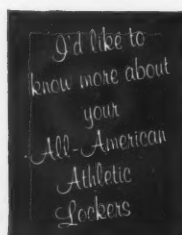 I'd like to
know more about
your
All-American
Athletic
Lockers